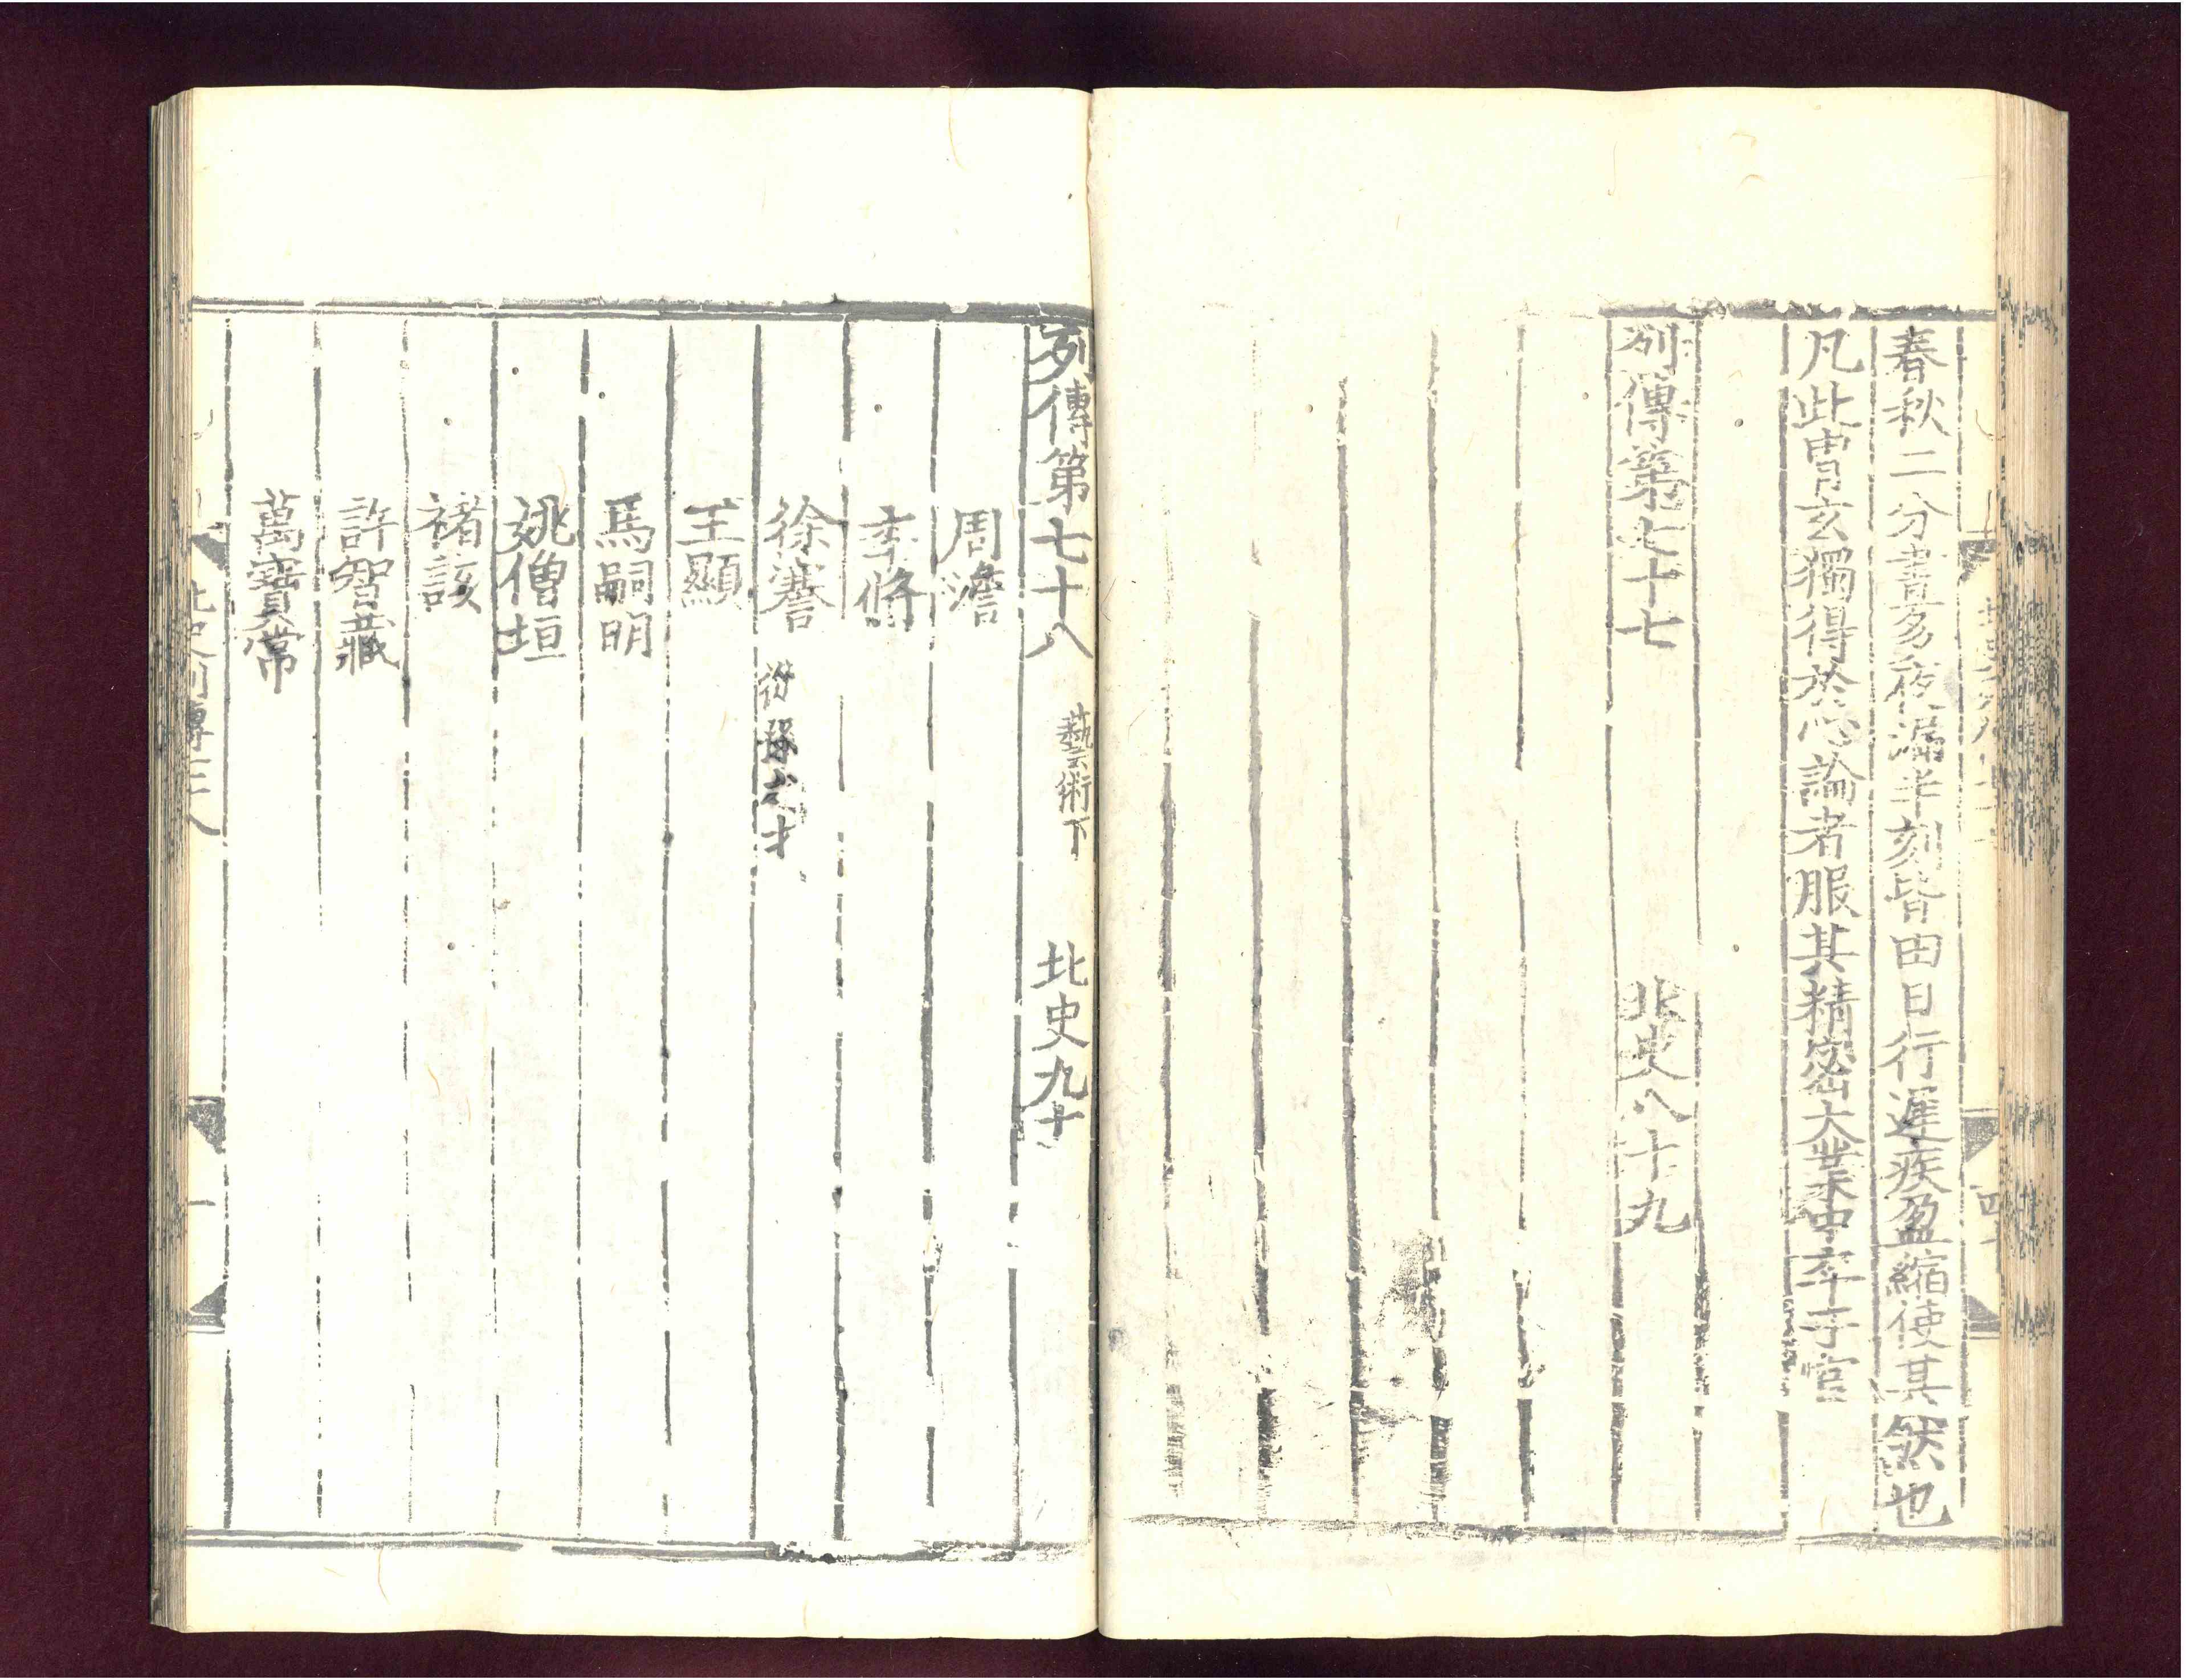 春秋二分晝多夜漏半刻皆由日行遲疾盈縮使其然也
凡此冑玄獨得於心論者服其精密大業中卒于官
列傳第七十七
北史八十九
列傳第七十八
藝術下
北史九十
周澹
李脩
徐謇
從孫之才
王顯
馬嗣明
姚僧垣
褚該
許智藏
萬寶常
北史列傳七十八
一